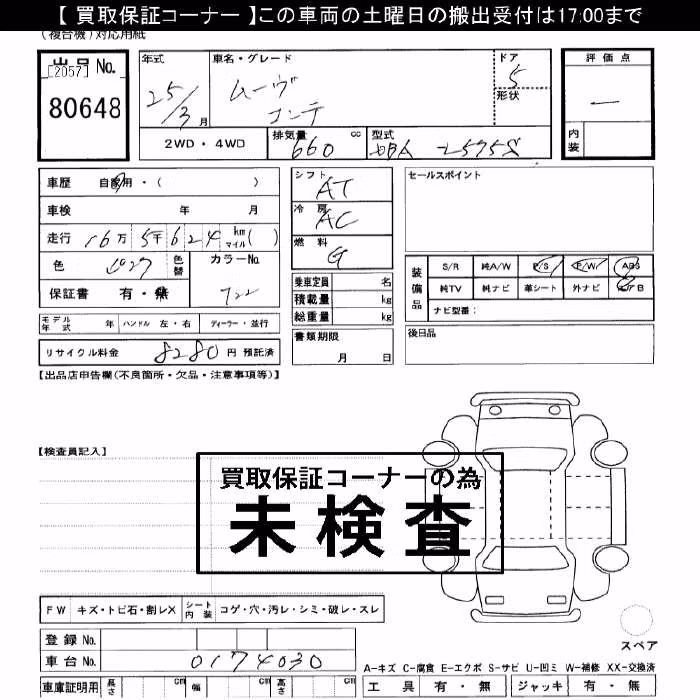 【 買取保証コーナー 】この車両の土曜日の搬出受付は17:00まで
(複合機)対応用紙
出品 No.
[2057]
80648
年式
25/3月
車名・グレード
ムーヴ
コンテ
ドア
5
形状
評価点
—
内装
2WD・4WD
排気量 660 cc
型式 DBA L575S
車歴 自家用・( )
車検 年 月
走行 16万5千624 km マイル( )
色
色替
カラーNo.
722
保証書 有・無
モデル年式 年 ハンドル 左・右 ディーラー・並行
リサイクル料金 8280 円 預託済
シフト AT
冷房 AC
燃料 G
乗車定員 名
積載量 kg
総重量 kg
書類期限
月 日
セールスポイント
装備品
S/R 純A/W P/S P/W ABS
純TV 純ナビ 革シート 外ナビ エアB
ナビ型番：
後日品
【出品店申告欄(不良箇所・欠品・注意事項等)】
【検査員記入】
買取保証コーナーの為
未検査
FW キズ・トビ石・割レX シート内装 コゲ・穴・汚レ・シミ・破レ・スレ
登録 No.
車台 No. 0174030
車庫証明用 長さ cm 幅 cm 高さ cm
スペア
A-キズ C-腐食 E-エクボ S-サビ U-凹ミ W-補修 XX-交換済
工具 有・無 ジャッキ 有・無